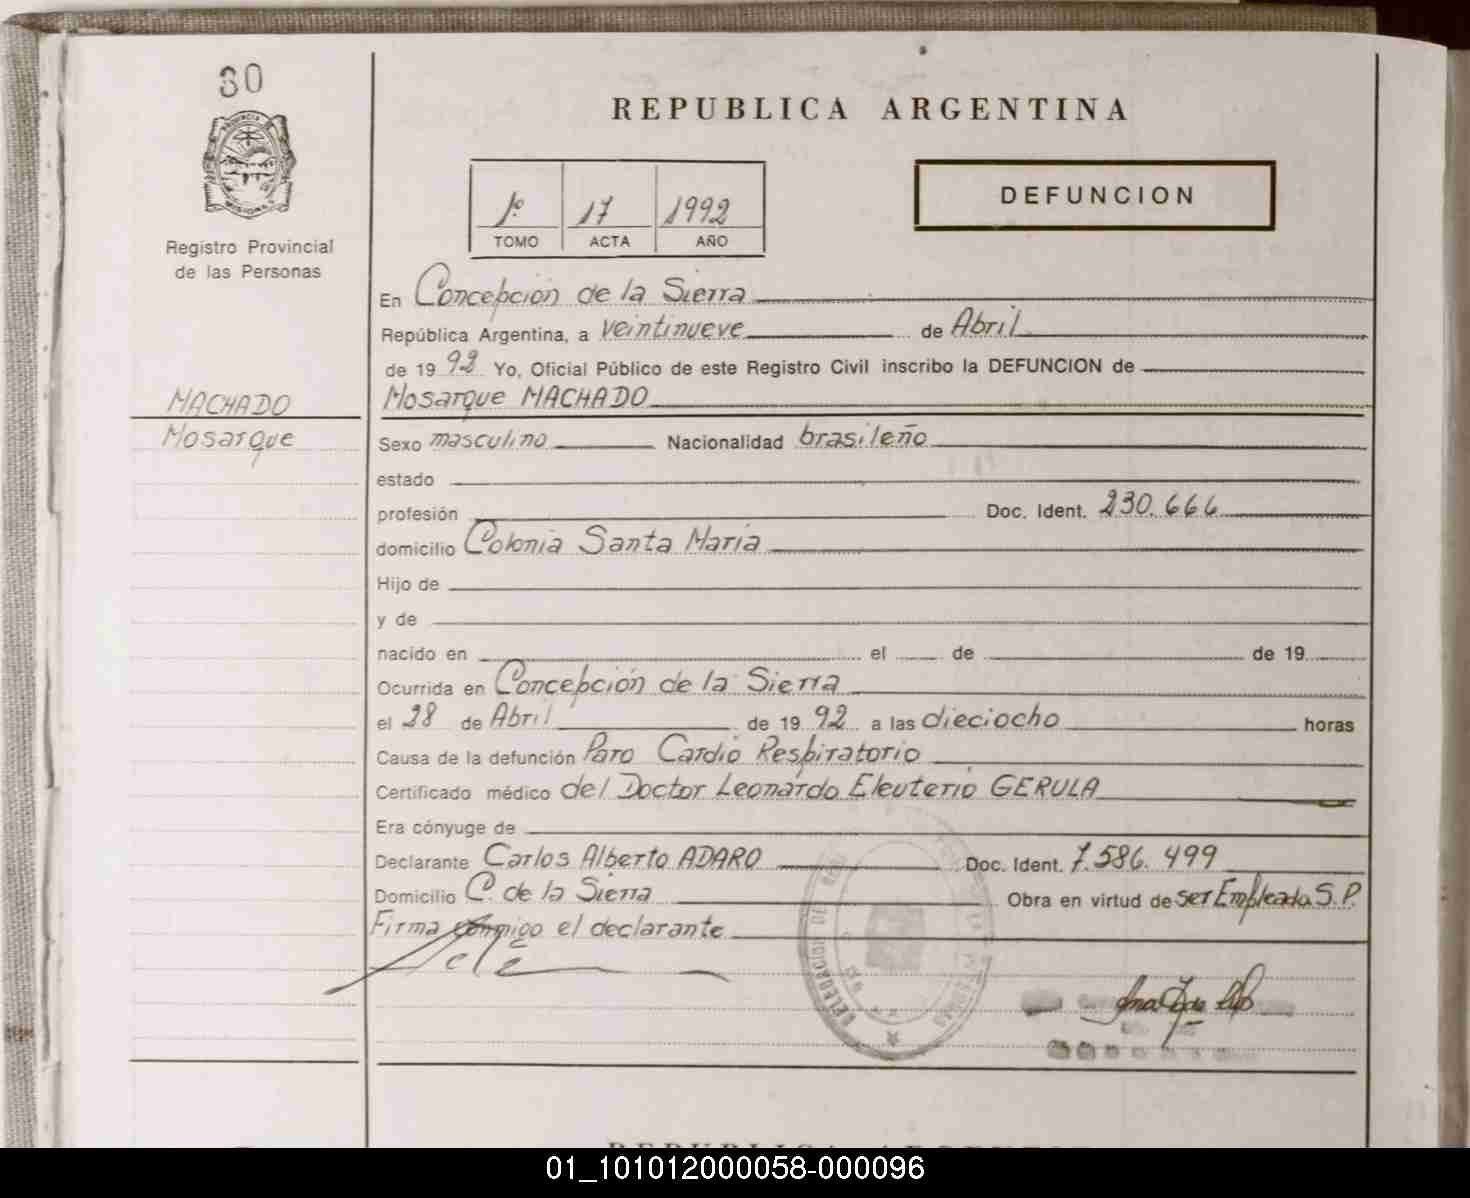 30
REPUBLICA ARGENTINA
DEFUNCION
1º 17 1992
TOMO ACTA AÑO
Registro Provincial
de las Personas
En Concepción de la Sierra
República Argentina, a veintinueve de Abril
de 1992 Yo, Oficial Público de este Registro Civil inscribo la DEFUNCION de
MACHADO
Mosarque MACHADO
Mosarque
Sexo masculino Nacionalidad brasileño
estado
profesión Doc. Ident. 230.666
domicilio Colonia Santa Maria
Hijo de
y de
nacido en el de de 19
Ocurrida en Concepción de la Sierra
el 28 de Abril de 1992 a las dieciocho horas
Causa de la defunción Paro Cardio Respiratorio
Certificado médico del Doctor Leonardo Eleuterio GERULA
Era cónyuge de
Declarante Carlos Alberto ADARO Doc. Ident. 7.586.499
Domicilio C. de la Sierra Obra en virtud de ser Empleado S.P.
Firma conmigo el declarante
01_101012000058-000096